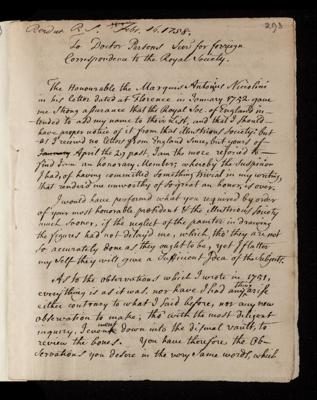 Read at R.S. Febr. 16. 1758.
293
To Doctor Parsons Secr. for foreign
Correspondence to the Royal Society.
The Honourable the Marquis Antonius Nicolini
in his letter dated at Florence in January 1752 gave
me strong assurance that the Royal Soc. of England in-
tended to add my name to their List, and that I should
have proper notice of it from that illustrious Society: but
as I receivd no letters from England since, but yours of
April the 29 past, I am the more rejoic'd to
find I am an honorary Member; whereby the suspicion
I had, of having committed something trivial in my writing,
that render'd me unworthy of so great an honor, is over.
I would have perform'd what you required by order
of your most honorable president & the illustrious Society
much sooner, if the neglect of the painter in drawing
the figures had not delay'd me, which tho' they are not
so accurately done as they ought to be, yet I flatter
my self they will give a sufficient Idea of the Subject.
As to the observations which I wrote in 1751,
every thing is as it was, nor have I had any thing arise
either contrary to what I said before, nor any new
observation to make; tho' with the most diligent
inquiry, I went down into the dismal vault, to
review the bones. You have therefore the Ob-
servations you desire in the very same words, which